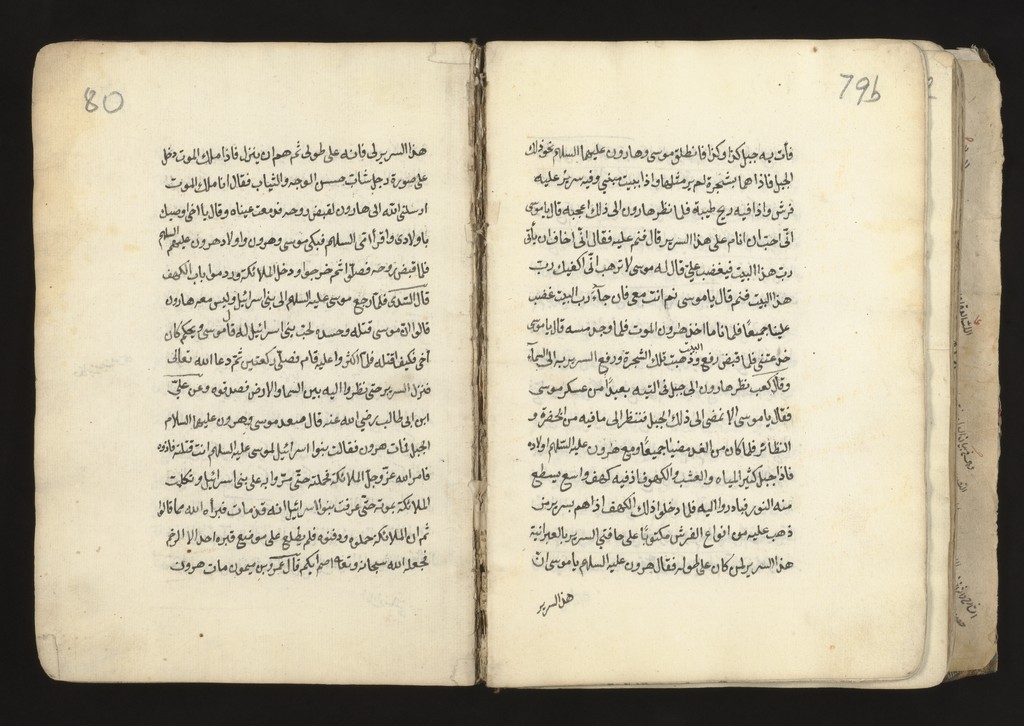 79b
فأت به جبل كذا وكذا فانطلق موسى وهارون عليهما السلام نحو ذلك
الجبل فاذا هما بشجرة لم ير مثلها واذا ببيت مبني وفيه سرير عليه
فرش واذا فيه ريح طيبة فلما نظر هارون الى ذلك اعجبه قال يا موسى
انّى احبّ ان انام على هذا السرير قال فنم عليه فقال انّى اخاف ان يأتى
ربّ هذا البيت فيغضب علىّ قال له موسى لا ترهب انّى اكفيك ربّ
هذا البيت فنم قال يا موسى نم انت معى فان جآء ربّ البيت غضب
علينا جميعًا فلما ناما اخذ هرون الموت فلما وجد مسه قال يا موسى
خدعتنى فلما قبض رفع البيت وذهبت تلك الشجرة ورفع السرير به الى السمآء
وقال كعب نظر هارون الى جبل فى التيه بعيدًا من عسكر موسى
فقال يا موسى الا تمضى الى ذلك الجبل فننظر الى ما فيه من الخضرة و
النظائر فلما كان من الغد مضيا جميعًا ومع هرون عليه السلام اولاده
فاذا جبل كثير المياه والعشب والكهوف اذ فيه كهف واسع يسطع
منه النور فبادروا اليه فلما دخلوا ذلك الكهف اذا هم بسرير من
ذهب عليه من انواع الفرش مكتوبًا على حافتى السرير بالعبرانية
هذا السرير لمن كان على طوله فقال هرون عليه السلام يا موسى انّ
هذا السرير
80
هذا السرير لى فانه على طولى ثم هم ان ينزل فاذا ملك الموت دخل
على صورة رجل شابّ حسن الوجه والثياب فقال انا ملك الموت
ارسلنى الله الى هارون لقبض روحه فدمعت عيناه وقال يا اخى اوصيك
باولادى واقرأ امّى السلام فبكى موسى وهرون واولاد هرون عليهم السلام
فلما قبض روحه فصلّى ثم خرجوا ودخل الملائكة وردموا باب الكهف
قال السّدى فلمّا رجع موسى عليه السلام الى بنى اسرائيل وليس معه هارون
قالوا انّ موسى قتله وحسده لحبّ بنى اسرائيل له قال موسى ويحكم كان
اخى فكيف اقتله فلمّا اكثروا عليه قام فصلّى ركعتين ثم دعا الله تعالى
فنزل السرير حتى نظروا اليه بين السما والارض فصدقوه وعن علىّ
ابن ابى طالب رضى الله عنه قال صعد موسى وهرون عليهما السلام
الجبل فمات هرون فقالت بنوا اسرائيل لموسى عليه السلام انت قتلته فاذوه
فامر الله عزّ وجلّ الملائكة فحملته حتى مرّوا به على بنى اسرائيل وتكلمت
الملائكة بموته حتّى عرفت بنوا اسرائيل انه قد مات فبرأه الله مما قالوا
ثم ان الملائكة حملوه ودفنوه فلم يطّلع على موضع قبره احد الا الرخم
فجعله الله سبحانه وتعالى اصم ابكم قال عمرو بن ميمون مات هرون